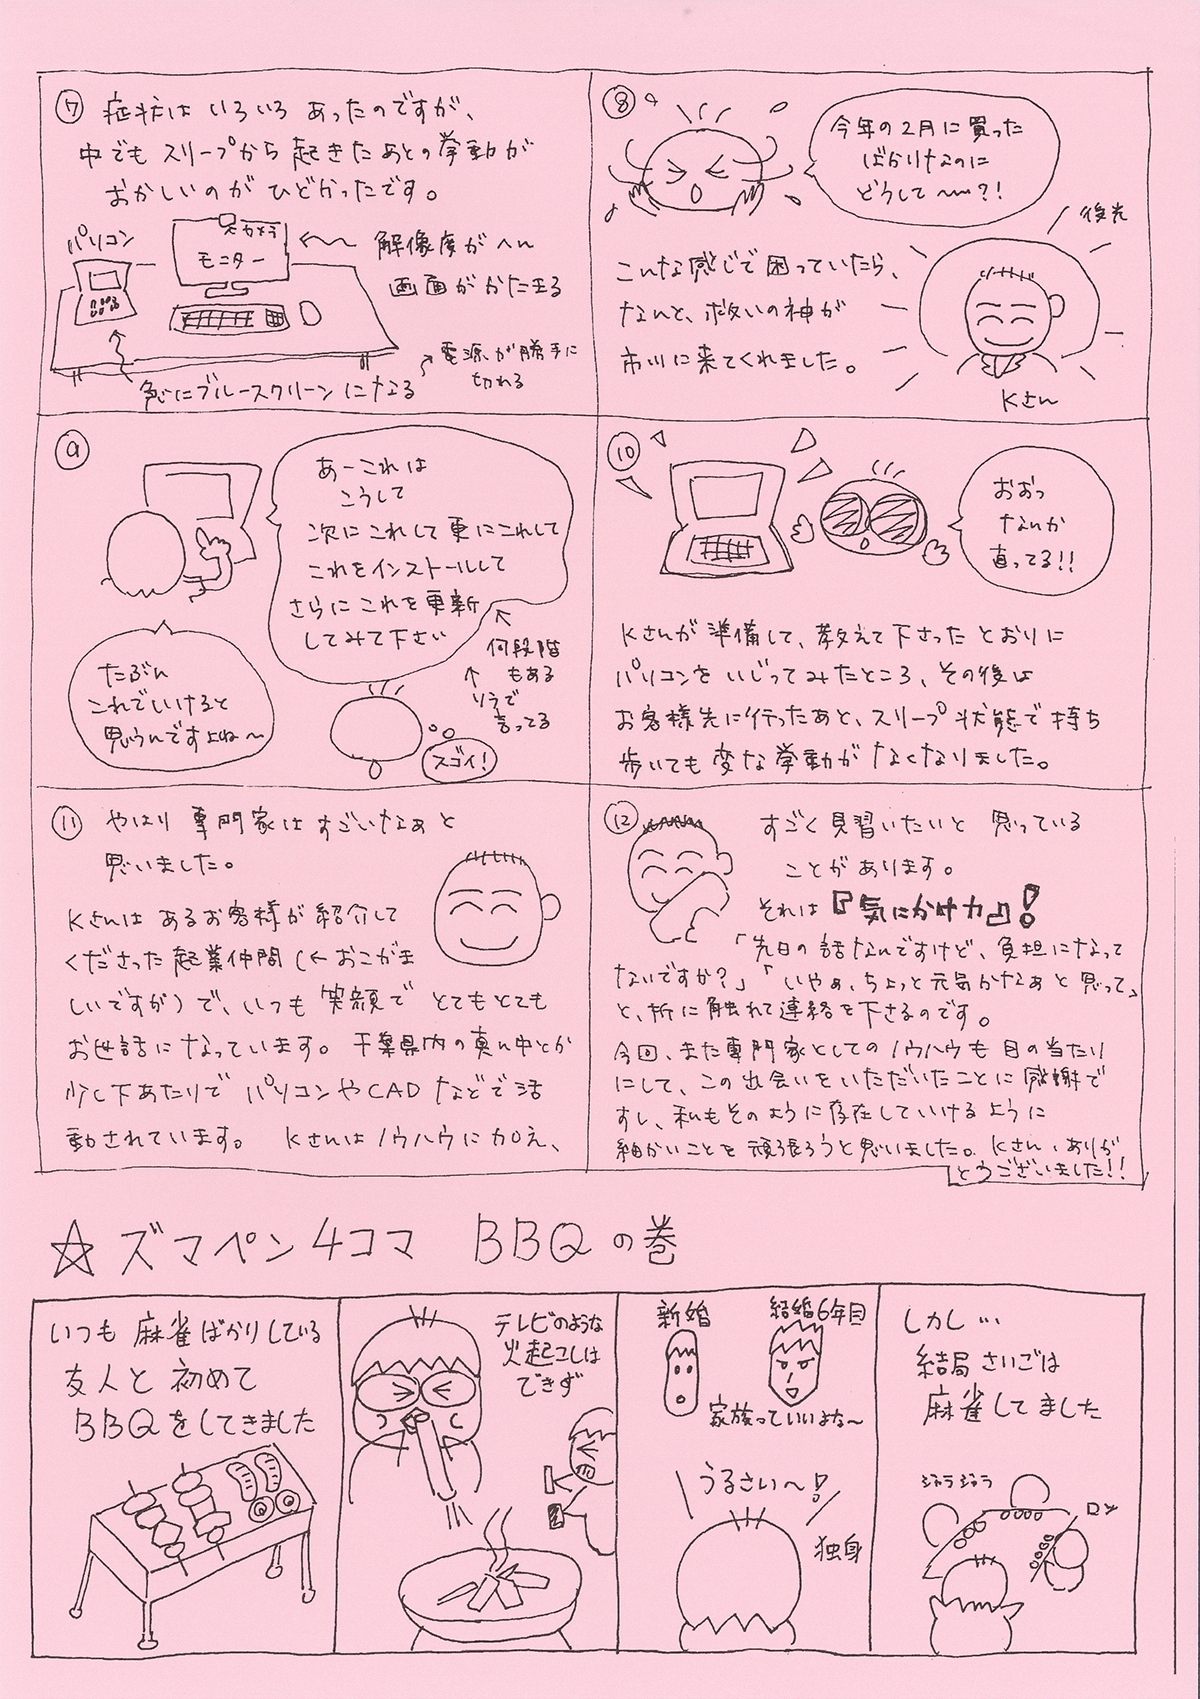 ⑦ 症状は いろいろ あったのですが、
中でも スリープから 起きた あとの 挙動が
おかしいのが ひどかったです。
パソコン
カメラ
モニター
解像度が へん
画面が かたまる
電源が勝手に
切れる
急にブルースクリーンになる
⑧
今年の2月に買った
ばかりなのに
どうして〜〜?!
後光
こんな感じで困っていたら、
なんと、救いの神が
市川に来てくれました。
Kさん
⑨
あーこれは
こうして
次に これして 更に これして
これを インストールして
さらに これを 更新
してみて下さい
何段階
もある
ソラで
言ってる
たぶん
これでいけると
思うんですよね〜
スゴイ!
⑩
おおっ
なんか
直ってる!!
Kさんが 準備して、教えて下さった とおりに
パソコンを いじってみたところ、その後は
お客様先に行ったあと、スリープ 状態で 持ち
歩いても 変な 挙動が なくなりました。
⑪ やはり 専門家は すごいなぁと
思いました。
Kさんは あるお客様が 紹介して
くださった 起業仲間 (←おこがま
しいですが) で、いつも 笑顔で とてもとても
お世話になっています。千葉県内の真ん中とか
少し下あたりで パソコンやCAD などで 活
動されています。 Kさんは ノウハウに 加え、
⑫ すごく 見習いたいと 思っている
ことが あります。
それは 『気にかけ力』!
「先日の 話なんですけど、負担になって
ないですか?」「いやぁ、ちょっと 元気かなぁと 思って」
と、折に触れて 連絡を 下さるのです。
今回、また専門家としての ノウハウも 目の当たり
にして、この 出会いを いただいたことに 感謝で
すし、私もそのように 存在していけるように
細かいことを 頑張ろうと思いました。Kさん、ありが
とうございました!!
☆ ズマペン 4コマ BBQ の巻
いつも 麻雀ばかりしている
友人と 初めて
BBQをしてきました
テレビのような
火起こしは
できず
新婚
結婚6年目
家族っていいよな〜
うるさい〜!
独身
しかし…
結局 さいごは
麻雀してました
ジャラジャラ
ロン